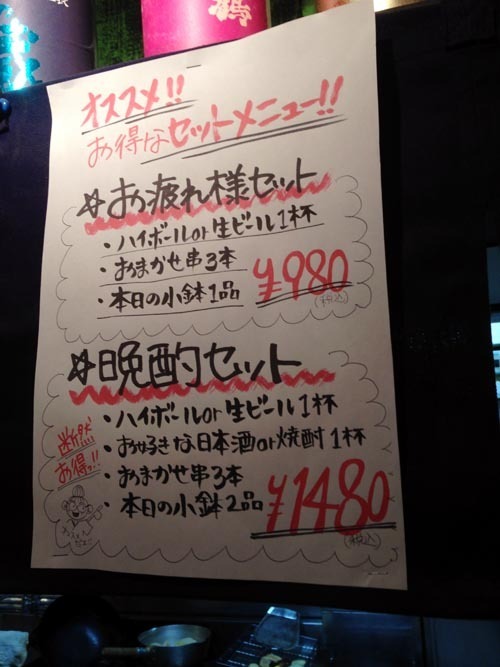 オススメ!!
お得なセットメニュー!!
☆お疲れ様セット
・ハイボールor生ビール1杯
・おまかせ串3本
・本日の小鉢1品
¥980
(税込)
☆晩酌セット
・ハイボールor生ビール1杯
・お好きな日本酒or焼酎1杯
・おまかせ串3本
・本日の小鉢2品
断然
お得ッ!!
¥1480
(税込)